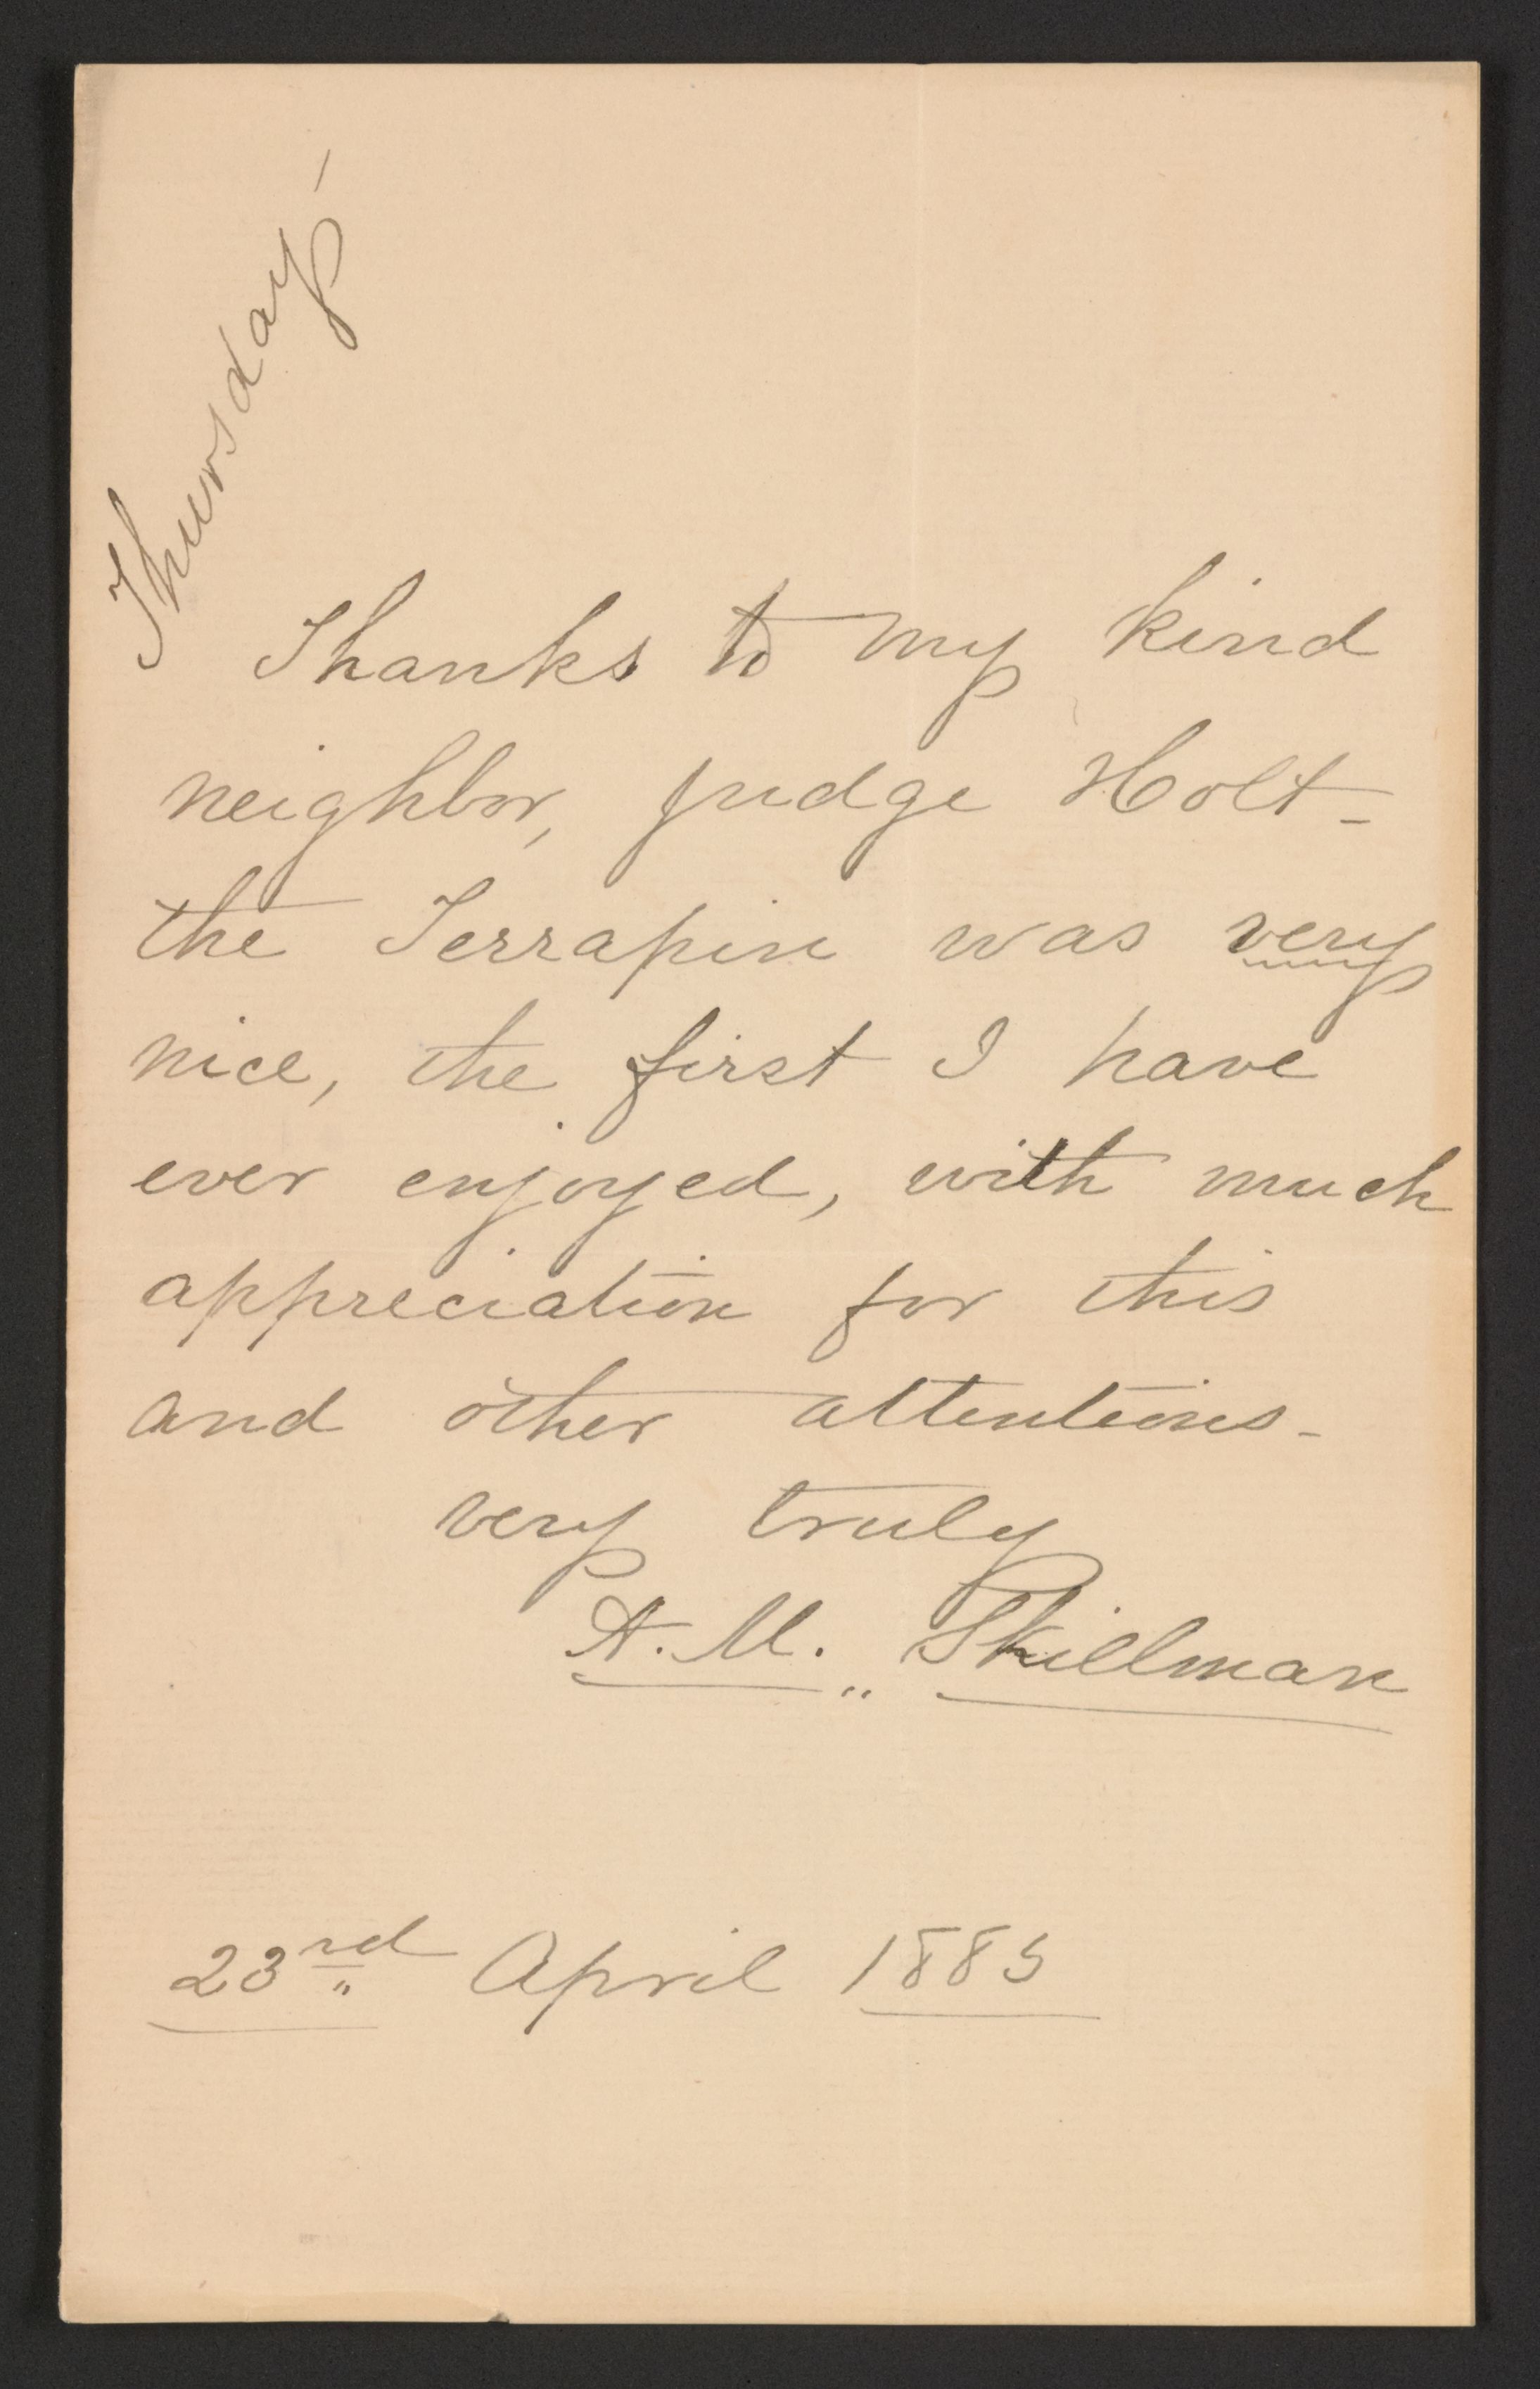 Thursday -
Thanks to my kind
neighbor, judge Holt -
the Terrapin was very
nice, the first I have
ever enjoyed, with much
appreciation for this
and other attentions -
very truly
A. M. Skillman
23rd April 1885